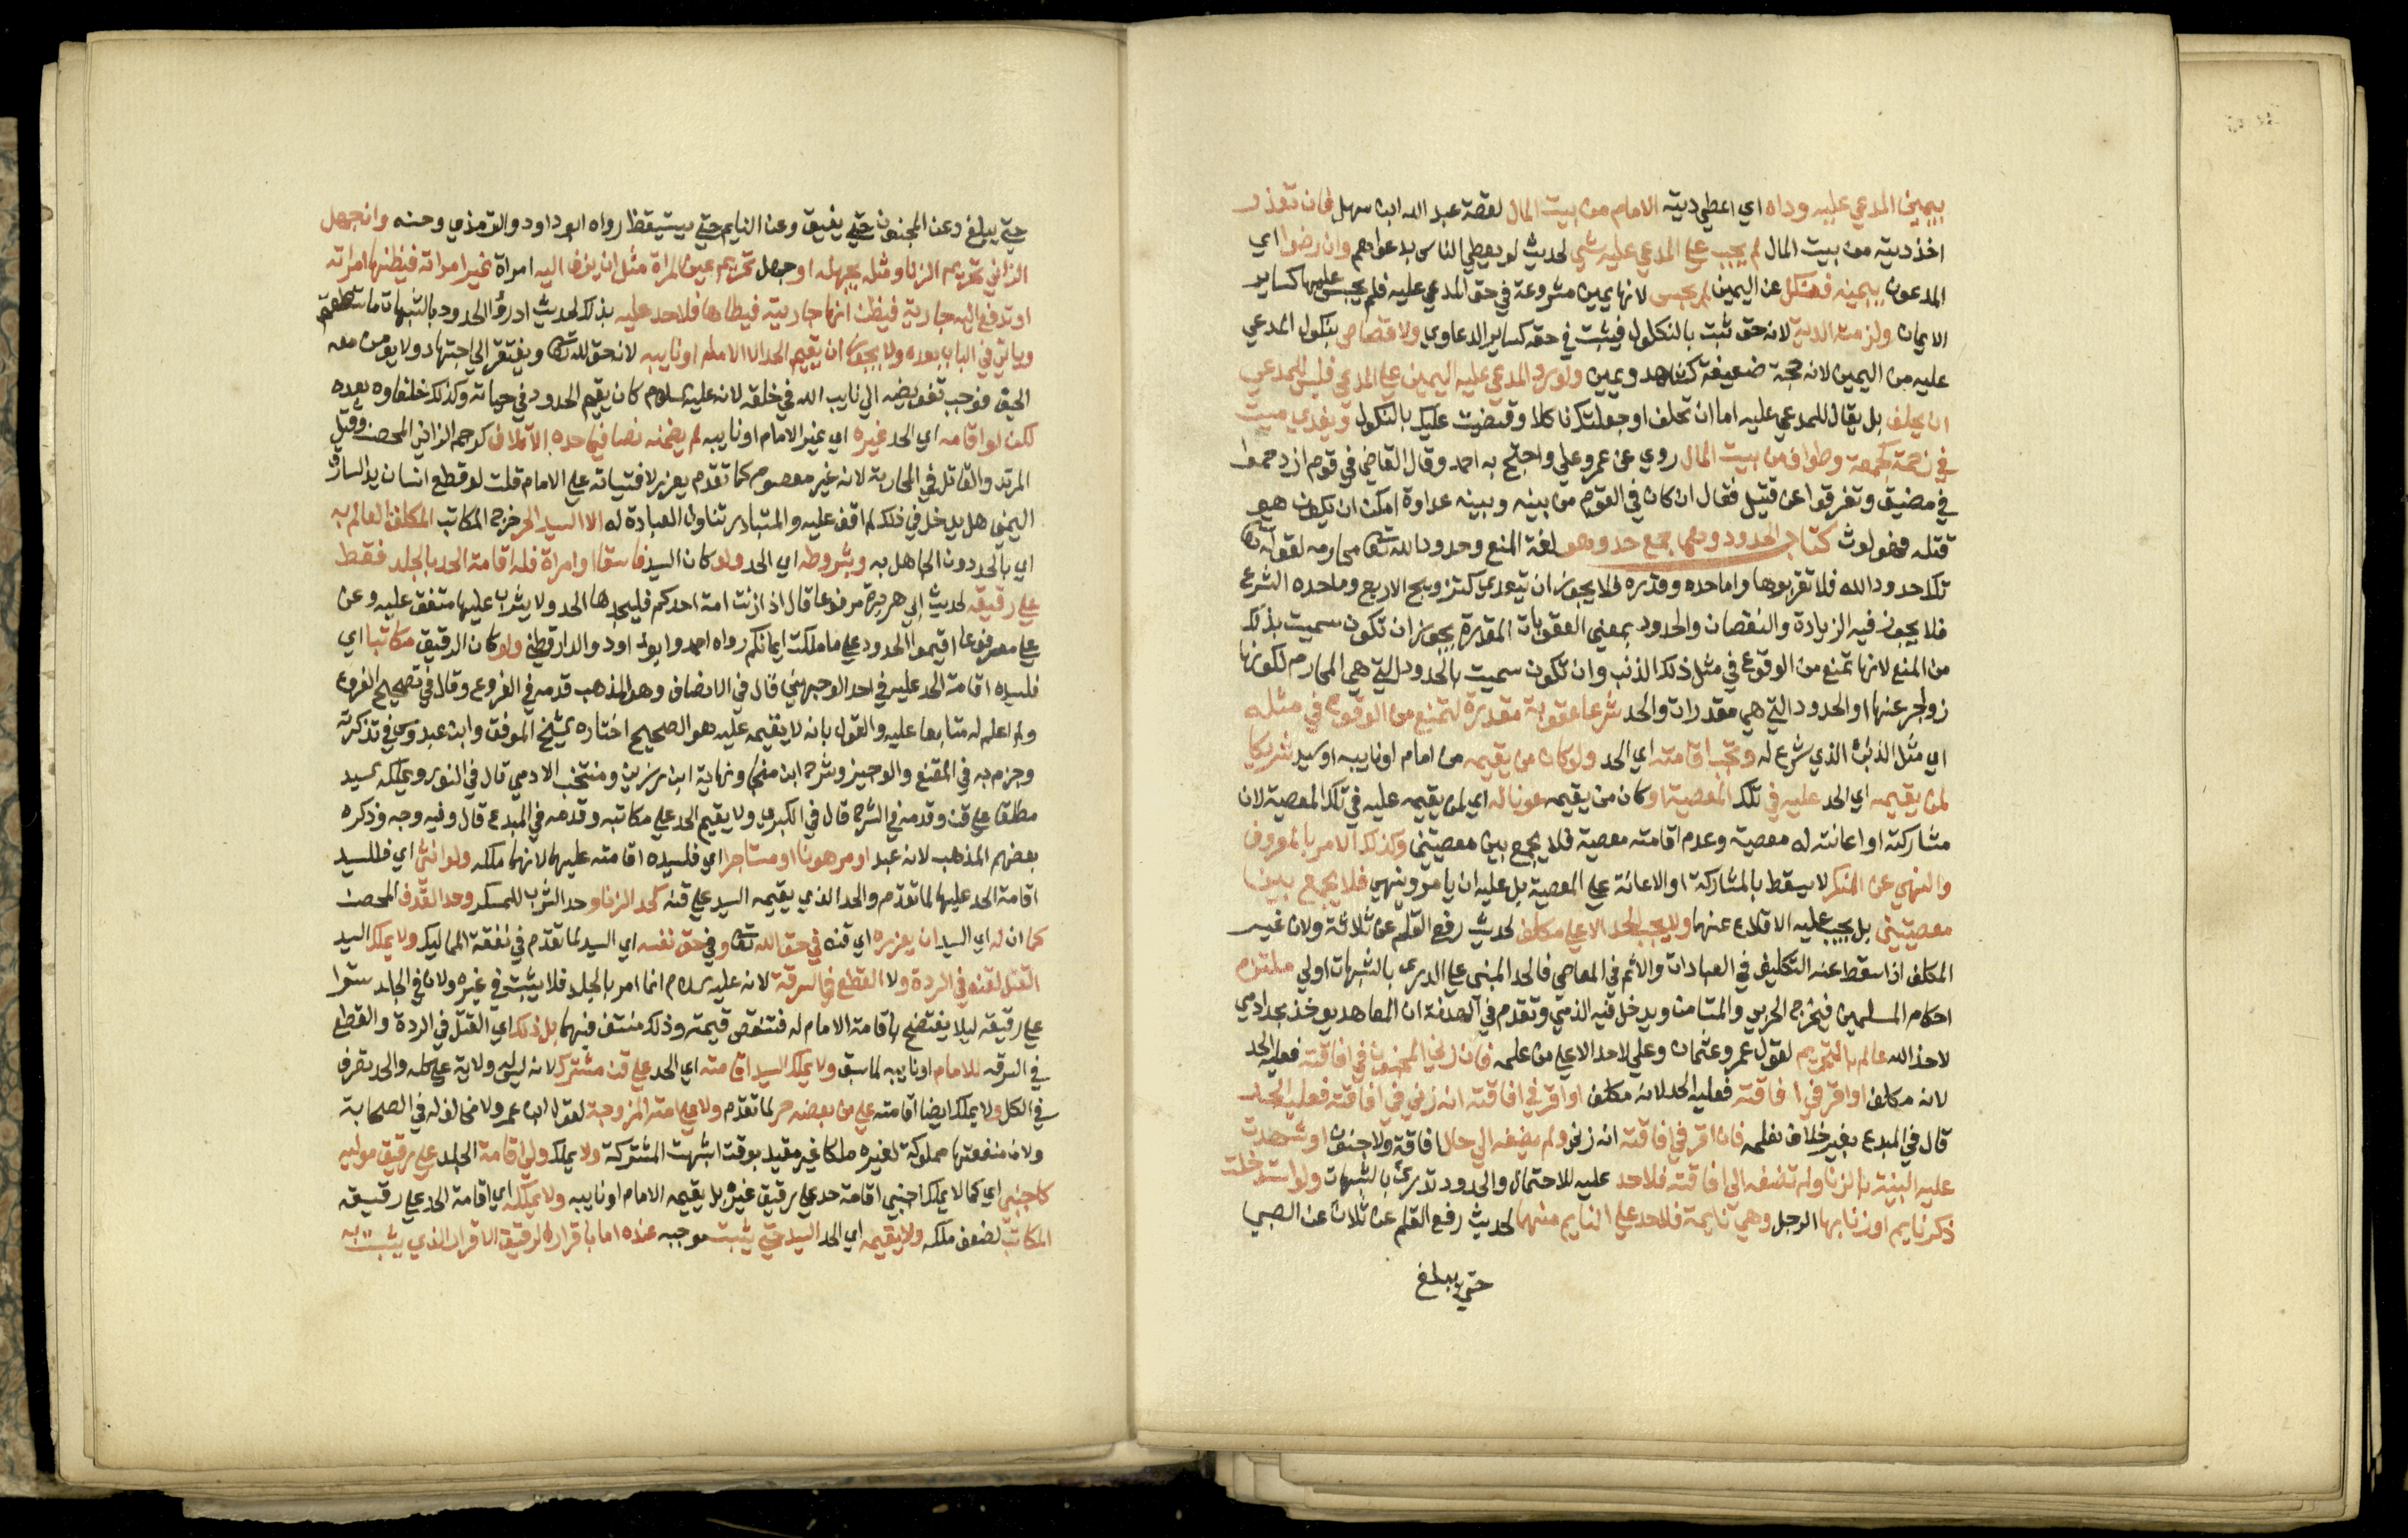 بيمين المدعي عليه وداه اي اعطي ديته الامام من بيت المال لقصة عبد الله ابن سهل فان تعذر
اخذ ديته من بيت المال لم يجب علي المدعي عليه شي لحديث لو يعطي الناس بدعواهم وان رضوا اي
المدعون بيمينه فنكل عن اليمين لم يحبس لانها يمين مشروعة في حق المدعي عليه فلم يحبس عليها كساير
الايمان ولزمته الدية لانه حق ثبت بالنكول فيثبت في حقه كساير الدعاوي ولا قصاص بنكول المدعي
عليه من اليمين لانه حجة ضعيفة كشاهد ويمين ولو رد المدعي عليه اليمين علي المدعي فليس للمدعي
ان يحلف بل يقال للمدعي عليه اما ان تحلف او جعلتك ناكلا وقضيت عليك بالنكول ويفدي ميت
في زحمة كجمعة وطواف من بيت المال روي عن عمر وعلي واحتج به احمد وقال القاضي في قوم ازدحموا
في مضيق وتفرقوا عن قتيل فقال ان كان في القوم من بينه وبينه عداوة امكن ان يكون هو
قتله فهو لوث كتاب الحدود وهي جمع حد وهو لغة المنع وحدود الله تعا محارمه لقوله تعا
تلك حدود الله فلا تقربوها واما حده وقدره فلا يجوز ان تتعدي كتزويج الاربع وما حده الشرع
فلا يجوز فيه الزيادة والنقصان والحدود بمعني العقوبات المقدرة يجوز ان تكون سميت بذلك
من المنع لانها تمنع من الوقوع في مثل ذلك الذنب وان تكون سميت بالحدود التي هي المحارم لكونها
زواجر عنها او الحدود التي هي مقدرات والحد شرعا عقوبة مقدرة لتمنع من الوقوع في مثله
اي مثل الذنب الذي شرع له وتجب اقامته اي الحد ولو كان من يقيمه من امام او نايبه او سيد شريكا
لمن يقيمه اي الحد عليه في تلك المعصية او كان من يقيمه عونا له اي لمن يقيمه عليه في تلك المعصية لان
مشاركته او اعانته له معصية وعدم اقامته معصية فلا يجمع بين معصيتين وكذلك الامر بالمعروف
والنهي عن المنكر لا يسقط بالمشاركة او الاعانة علي المعصية بل عليه ان يامر وينهي فلا يجمع بين
معصيتين بل يجب عليه الاقلاع عنهما ولا يجب الحد الا علي مكلف لحديث رفع القلم عن ثلاثة ولان غير
المكلف اذا سقط عنه التكليف في العبادات والاثم في المعاصي فالحد المبني علي الدري بالشبهات اولي ملتزم
احكام المسلمين فيخرج الحربي والمستامن ويدخل فيه الذمي وتقدم في الهدنة ان المعاهد يوخذ بحد ادمي
لا حد الله عالم بالتحريم لقول عمر وعثمان وعلي لا حد الا علي من علمه فان زني المجنون في افاقته فعليه الحد
لانه مكلف او اقر في افاقته فعليه الحد لانه مكلف او اقر في افاقته انه زني في افاقته فعليه الحد
قال في المبدع بغير خلاف نعلمه فان اقر في افاقته انه زني ولم يضفه الي حال افاقة ولا جنون او شهدت
عليه البينة بالزنا ولم تضفه الي افاقته فلا حد عليه للاحتمال والحدود تدري بالشبهات ولو استدخلت
ذكر نايم او زنا بها الرجل وهي نايمة فلا حد علي النايم منهما لحديث رفع القلم عن ثلاث عن الصبي
حتي يبلغ
حتي يبلغ وعن المجنون حتي يفيق وعن النايم حتي يستيقظ رواه ابو داود والترمذي وحسنه وان جهل
الزاني تحريم الزنا ومثله يجهله او جهل تحريم عين المراة مثل ان يزف اليه امراة غير امراته فيظنها امراته
او تدفع اليه جارية فيظن انها جاريته فيطاها فلا حد عليه بذلك لحديث ادرؤا الحدود بالشبهات ما استطعتم
وياتي في الباب بعده ولا يجوز ان يقيم الحد الا الامام او نايبه لانه حق لله تعا ويفتقر الي اجتهاد ولا يومن معه
الحيف فوجب تفويضه الي نايب الله في خلقه لانه عليه السلام كان يقيم الحدود في حياته وكذلك خلفاوه بعده
لكن لو اقامه اي الحد غيره اي غير الامام او نايبه لم يضمنه نصا فيما حده الاتلاف كرجم الزاني المحصن وقتل
المرتد والقاتل في المحاربة لانه غير معصوم كما تقدم يعزر لافتياته علي الامام قلت لو قطع انسان يد السارق
اليمني هل يدخل في ذلك لم اقف عليه والمتبادر تناول العبادة له الا السيد الحر خرج المكاتب المكلف العالم به
اي بالحد دون الجاهل به وبشروطه اي الحد ولو كان السيد فاسقا او امراة فله اقامة الحد بالجلد فقط
علي رقيقه لحديث ابي هريرة مرفوعا قال اذا زنت امة احدكم فليجلدها الحد ولا يثرب عليها متفق عليه وعن
علي مرفوعا اقيموا الحدود علي ما ملكت ايمانكم رواه احمد وابو داود والدارقطني ولو كان الرقيق مكاتبا اي
فلسيده اقامة الحد عليه في احد الوجهين قال في الانصاف وهو المذهب قدمه في الفروع وقال في تصحيح الفروع
ولم اعلم له متابعا عليه والقول بانه لا يقيمه عليه هو الصحيح اختاره الشيخ الموفق وابن عبدوس في تذكرته
وجزم به في المقنع والوجيز وشرح ابن منجا ونهاية ابن رزين ومنتخب الادمي قال في المنور ويملكه سيد
مطلقا علي قن وقدمه في الشرح قال في الكبري ولا يقيم الحد علي مكاتبه وقدمه في المبدع قال وفيه وجه وذكره
بعضهم المذهب لانه عبد او مرهونا او مستاجرا اي فلسيده اقامته عليهما لانهما ملكه ولو انثي اي فللسيد
اقامة الحد عليها لما تقدم والحد الذي يقيمه السيد علي قنه كحد الزنا وحد الشرب للمسكر وحد القذف المحصن
كما ان له اي السيد ان يعزره اي قنه في حق الله تعا وفي حق نفسه اي السيد لما تقدم في نفقة المماليك ولا يملك السيد
القتل لقنه في الردة ولا القطع في السرقة لانه عليه السلام انما امر بالجلد فلا يثبت في غيره ولان في الجلد سترا
علي رقيقه ليلا يفتضح باقامة الامام له فتنقص قيمته وذلك منتف فيهما بل ذلك اي القتل في الردة والقطع
في السرقه للامام او نايبه لما سبق ولا يملك السيد اقامته اي الحد علي قن مشترك لانه ليس له ولاية علي كله والحد تصرف
في الكل ولا يملك ايضا اقامته علي من بعضه حر لما تقدم ولا علي امته المزوجة لقول ابن عمر ولا مخالف له في الصحابة
ولان منفعتها مملوكة لغيره ملكا غير مقيد بوقت اشبهت المشتركة ولا يملك ولي اقامة الجلد علي رقيق موليه
كاجنبي اي كما لا يملك اجنبي اقامة حد علي رقيق غيره بل يقيمه الامام او نايبه ولا يملكه اي اقامة الحد علي رقيقه
المكاتب لضعف ملكه ولا يقيمه اي الحد السيد حتي يثبت موجبه عنده اما باقرار الرقيق الاقرار الذي يثبت به